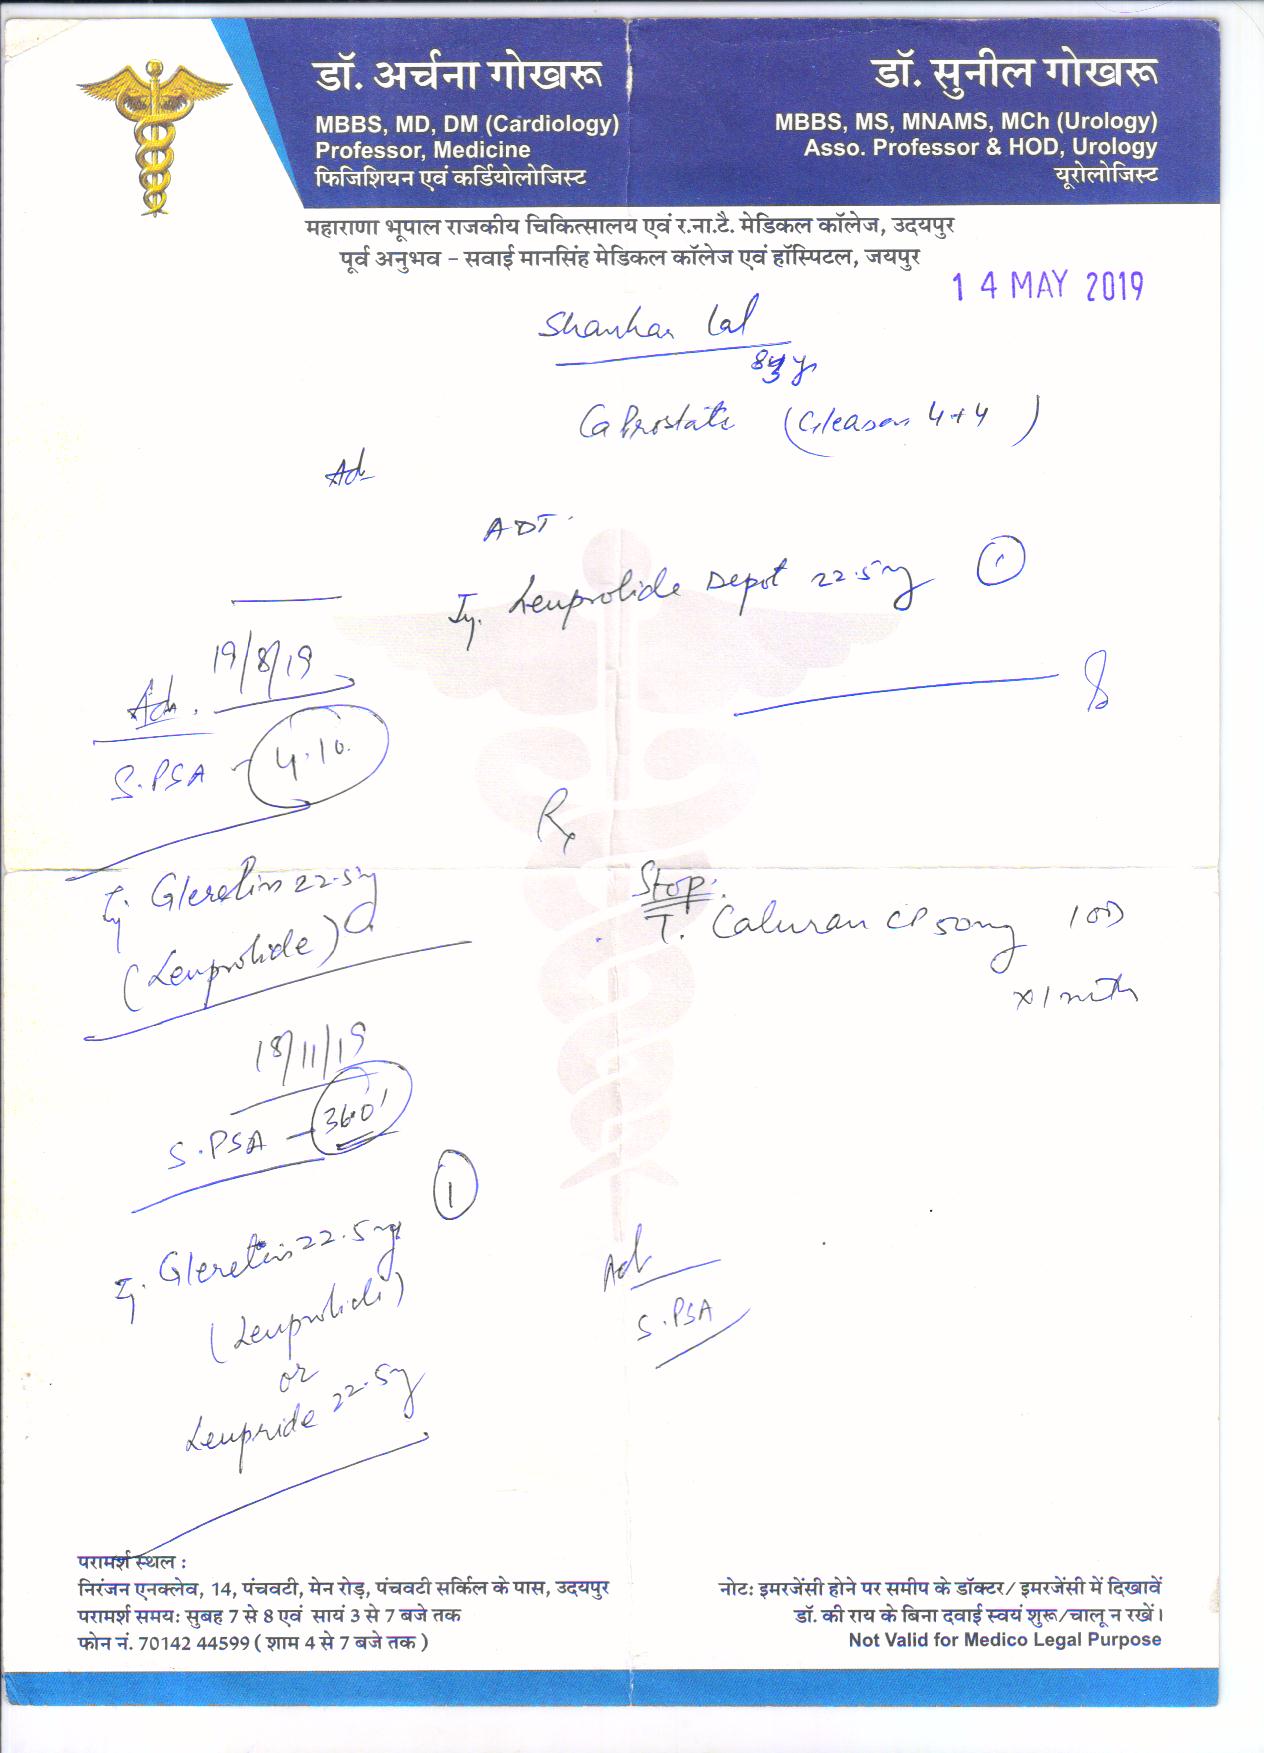 डॉ. अर्चना गोखरू
MBBS, MD, DM (Cardiology)
Professor, Medicine
फिजिशियन एवं कर्डियोलोजिस्ट
डॉ. सुनील गोखरू
MBBS, MS, MNAMS, MCh (Urology)
Asso. Professor & HOD, Urology
यूरोलोजिस्ट
महाराणा भूपाल राजकीय चिकित्सालय एवं र.ना.टै. मेडिकल कॉलेज, उदयपुर
पूर्व अनुभव – सवाई मानसिंह मेडिकल कॉलेज एवं हॉस्पिटल, जयपुर
14 MAY 2019
Shankar Lal
Ca Prostate (Gleason 4+4)
Ad
ADT
Inj. Leuprolide Depot 22.5mg 1
19/8/19
Adv.
S.PSA - 4.10
Inj Gleretin 22.5mg
(Leuprolide)
18/11/19
S.PSA –
1
Inj. Gleretin 22.5mg
(Leuprolide)
or
Leupride 22.5mg
Rx
Stop:
T. Caluran CP 50mg 1OD
x 1 mth
Ad
S.PSA
परामर्श स्थल :
निरंजन एनक्लेव, 14, पंचवटी, मेन रोड़, पंचवटी सर्किल के पास, उदयपुर
परामर्श समय: सुबह 7 से 8 एवं सायं 3 से 7 बजे तक
फोन नं. 70142 44599 ( शाम 4 से 7 बजे तक )
नोट: इमरजेंसी होने पर समीप के डॉक्टर/ इमरजेंसी में दिखावें
डॉ. की राय के बिना दवाई स्वयं शुरू/चालू न रखें।
Not Valid for Medico Legal Purpose